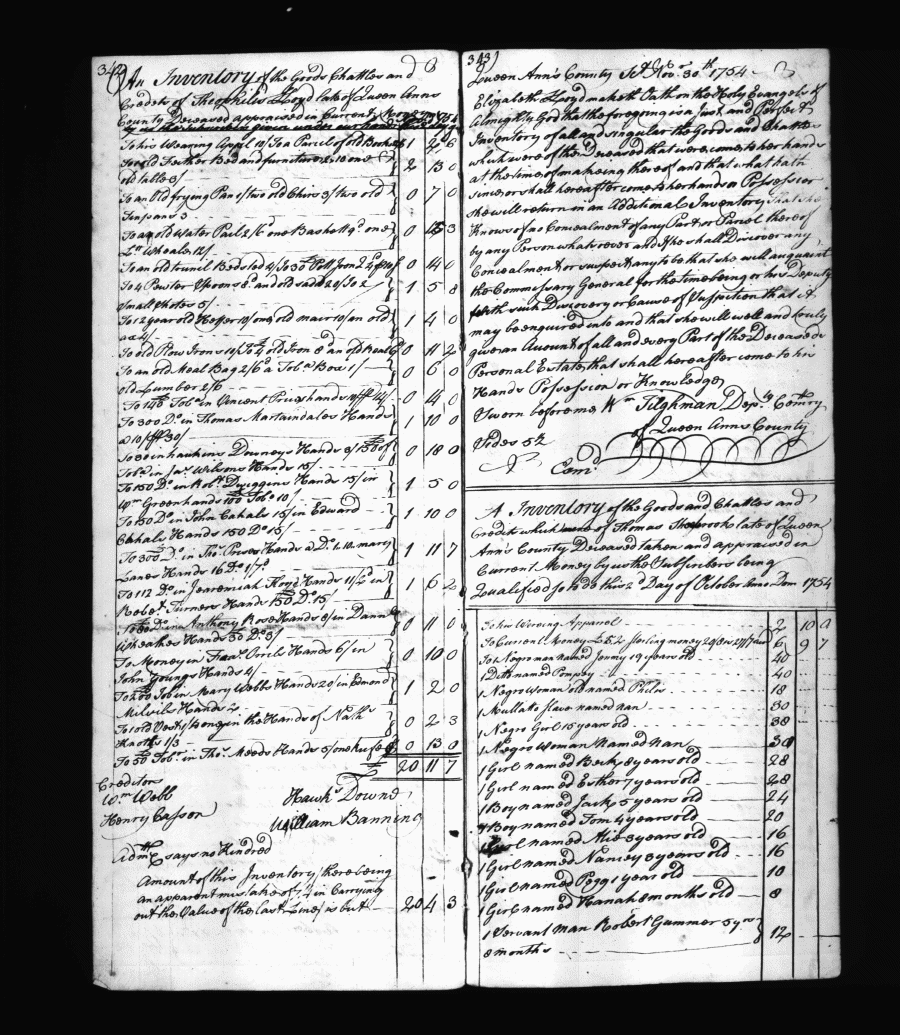 342
An Inventory of the Goods Chattles and
Credets of Theophils Lloyd late of Queen Anns
County Deceased appraised in Current Money
To his Wearing Appl 10/ To a Parcil of old Baskets 1 2 6
To old Feather Bed and furniture 2..10 one 2 13 0
old table 3/
To an Old frying Pan 1/ two old Chirs 3/ two old 0 7 0
Tin pans 3
To an old Water Pail 2/6 one Baskett 9d one 0 15 3
Ln Wheale 12/
To an old trunil Bedsted 4/ To 30 lb Pott Iron 0 14 0
To 4 Pewter Spoons 8d and old sadle 20/ To 2 1 5 8
Small Shotes 5/
To 1 2 year old Heffer 10/ one old mair 10/ an old 1 4 0
ax 4/
To old Plow Irons 10/ To 4 lb old Iron 8d an old 0 11 2
To an old Meal Bag 2/6 a Toba Box 1/ 0 6 0
old Lumber 2/6
To 140 Toba in Vincent Prices hands 0 4 0
To 300 Do in Thomas Martaindales Hands 1 10 0
a 10/ 30/
To 30 in hawkins Downeys Hands 3/ 150 of 0 18 0
Toba in Jas Wilsons Hands 15/
To 150 Do in Robt Dwiggins Hands 15/ in 1 5 0
Wm Greenhands 100 Toba 10/
To 150 Do in John Cahals 15/ in Edward 1 10 0
Cahals Hands 150 Do 15/
To 300 Do in Thos Hands a Do 1..10.. mary 1 11 7
Lanes Hands 16 Do 1/7d
To 112 Do in Jearemiah Hands 11/2 in 1 6 2
Robet Turners Hands 150 Do 15
To 80 Do in Anthony Rose Hands 8/ in Danl 0 11 0
Wheatles Hands 30 Do 3/
To Money in Hands 6/ in 0 10 0
John Youngs Hands 4/
To 200 Tob in Mary Webbs Hands 20/ in Edmond 1 2 0
Milvils Hands 2
To 1 old Vest 1/ in the Hands of Nath 0 2 3
1/3
To 50 Tob in Thos Meeds Hands 5/ one 0 13 0
20 11 7
Creditors
Wm Webb
Henry Casson
Hawks Downe
William Banning
Admx says no Kindred
Amount of this Inventory there being
an apparent mistake of 7/4 in Carrying
out the Value of the last Line is but 20 4 3
343
Queen Ann's County Sct Novr 30th 1754
Elizabeth Lloyd maketh Oath on the Holy Evangels of
Almighty God that the foregoing is a Just and Perfect
Inventory of all and singular the Goods and Chattles
which were of the Deceased that were come to her hands
at the time of making thereof and that what hath
since or shall hereafter come to her hands or Possession
she will return in an Additional Inventory that she
Knows of no Concealment of any Part or Parcel thereof
by any Person whatsoever and if she shall Discover any
Concealment or suspect any to be that she will acquaint
the Commissary General for the time being or his Deputy
with such Discovery or Cause of Suspition that it
may be enquired into and that she will well and truly
give an Amount of all and every Part of the Deceaseds
Personal Estate, that shall hereafter come to his
Hands Possession or Knowledge
Sworn before me Wm Tilghman Depty Comry
of Queen Anns County
Vides 52
Com
A Inventory of the Goods and Chattles and
Credits which were of Thomas late of Queen
Ann's County Deceased taken and appraised in
Current Money by us the Subscribers being
Qualified so to do this 2d Day of October Anno Dom 1754
To his Wearing Apparel 2 10 0
To Current Money 6 9 7
To 1 Negro man named Jemmy 19 years old 40
1 Do named Pompey 40
1 Negro Woman old named 18
1 Mullatto slave named nan 30
1 Negro Girl 15 years old 38
1 Negro Woman Named Nan 30
1 Girl named Beck 8 years old 28
1 Girl named Esther 7 years old 28
1 Boy named Jack 5 years old 24
1 Boy named Tom 4 years old 20
1 Girl named 3 years old 16
1 Girl named Nancey 3 years old 16
1 Girl named Pegg 1 year old 10
1 Girl named Hanah 8 months old 8
1 Servant man Robert Gummer 3 yrs 12
8 months